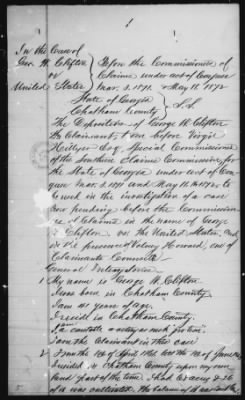 In the Case of
Geo. W. Clifton
vs
United States
Before the Commissioners of
Claims under act of Congress
Mar. 3. 1871. & May 11. 1872
State of Georgia
Chatham County
S.S.
The Deposition of George W. Clifton
the Claimant, taken before Virgil
Hillyer Esq. Special Commissioner
of the Southern Claims Commission, for
the State of Georgia under act of Con-
gress Mar. 3. 1871 and May 11. 1872 to
be used in the investigation of a case
now pending before the Commission-
ers of Claims in the name of George
W. Clifton vs. The United States, and
in the presence of Volney Howard, one of
Claimants Counsel
General Interrogatories
1 My name is George W. Clifton
I was born in Chatham County
I am 41 years of age
I reside in Chatham County.
I am the Claimant in this case
2 From the 1st of April 1861 to the 1st of June 1865
I resided in Chatham County upon my own
land part of the time I had acres & 20
of it was cultivated. The balance of it was